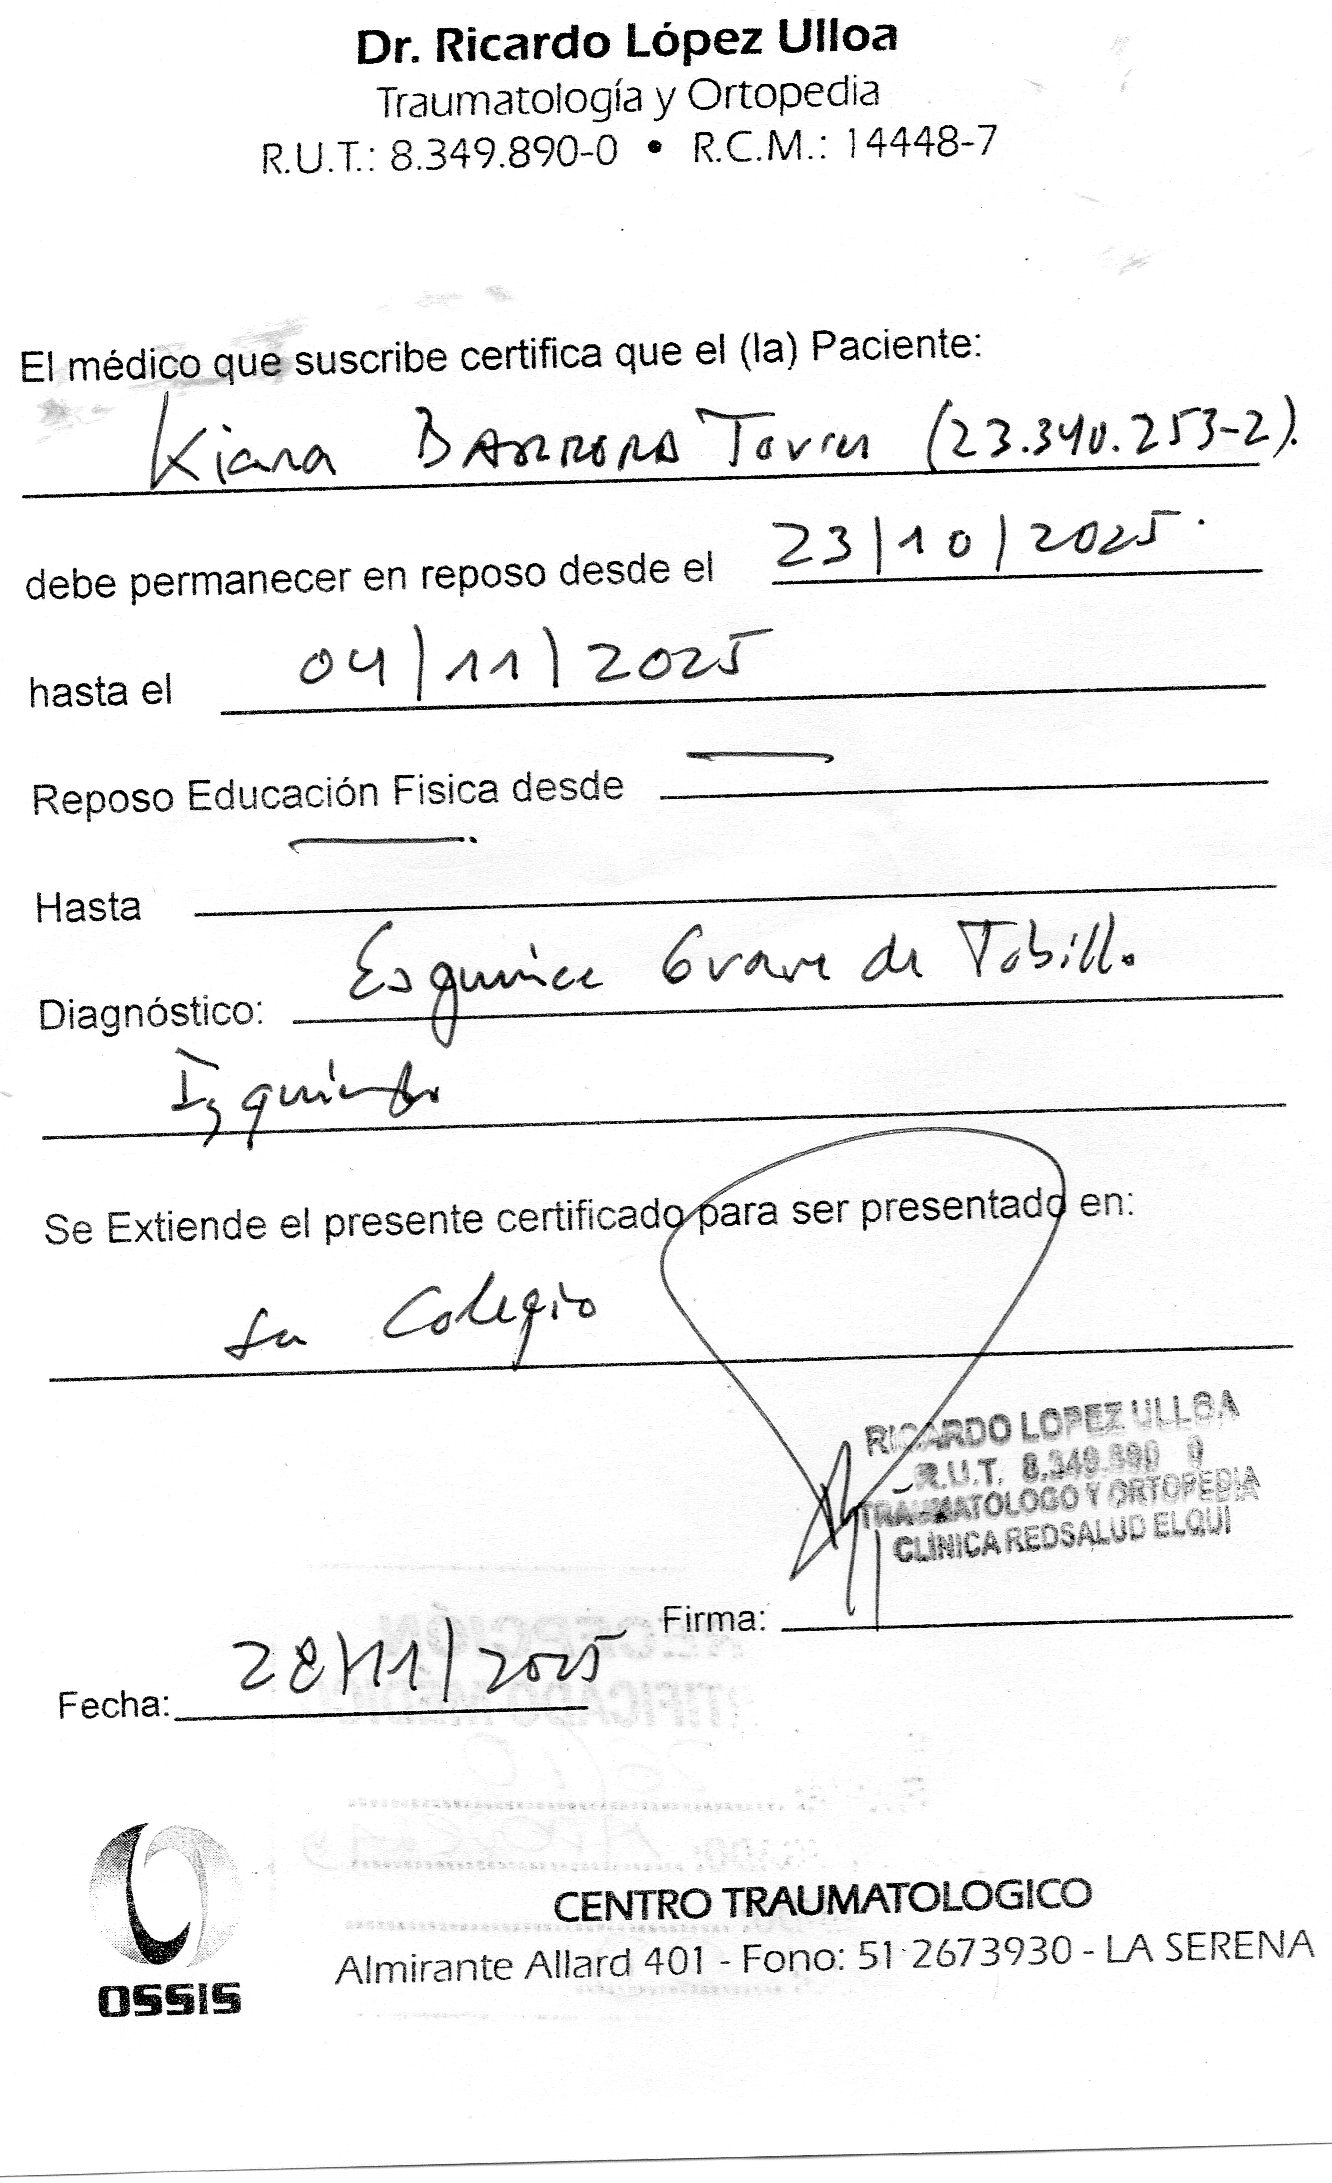 Dr. Ricardo López Ulloa
Traumatología y Ortopedia
R.U.T.: 8.349.890-0 • R.C.M.: 14448-7
El médico que suscribe certifica que el (la) Paciente:
Kiara BARRERA Torres (23.340.253-2).
debe permanecer en reposo desde el 23/10/2025.
hasta el 04/11/2025
Reposo Educación Fisica desde —
Hasta —
Diagnóstico: Esguince Grave de Tobillo
Izquierdo
Se Extiende el presente certificado para ser presentado en:
su Colegio
RICARDO LOPEZ ULLOA
R.U.T. 8.349.890 0
TRAUMATOLOGO Y ORTOPEDIA
CLINICA REDSALUD ELQUI
Firma:
Fecha: 28/11/2025
OSSIS
CENTRO TRAUMATOLOGICO
Almirante Allard 401 - Fono: 51 2673930 - LA SERENA